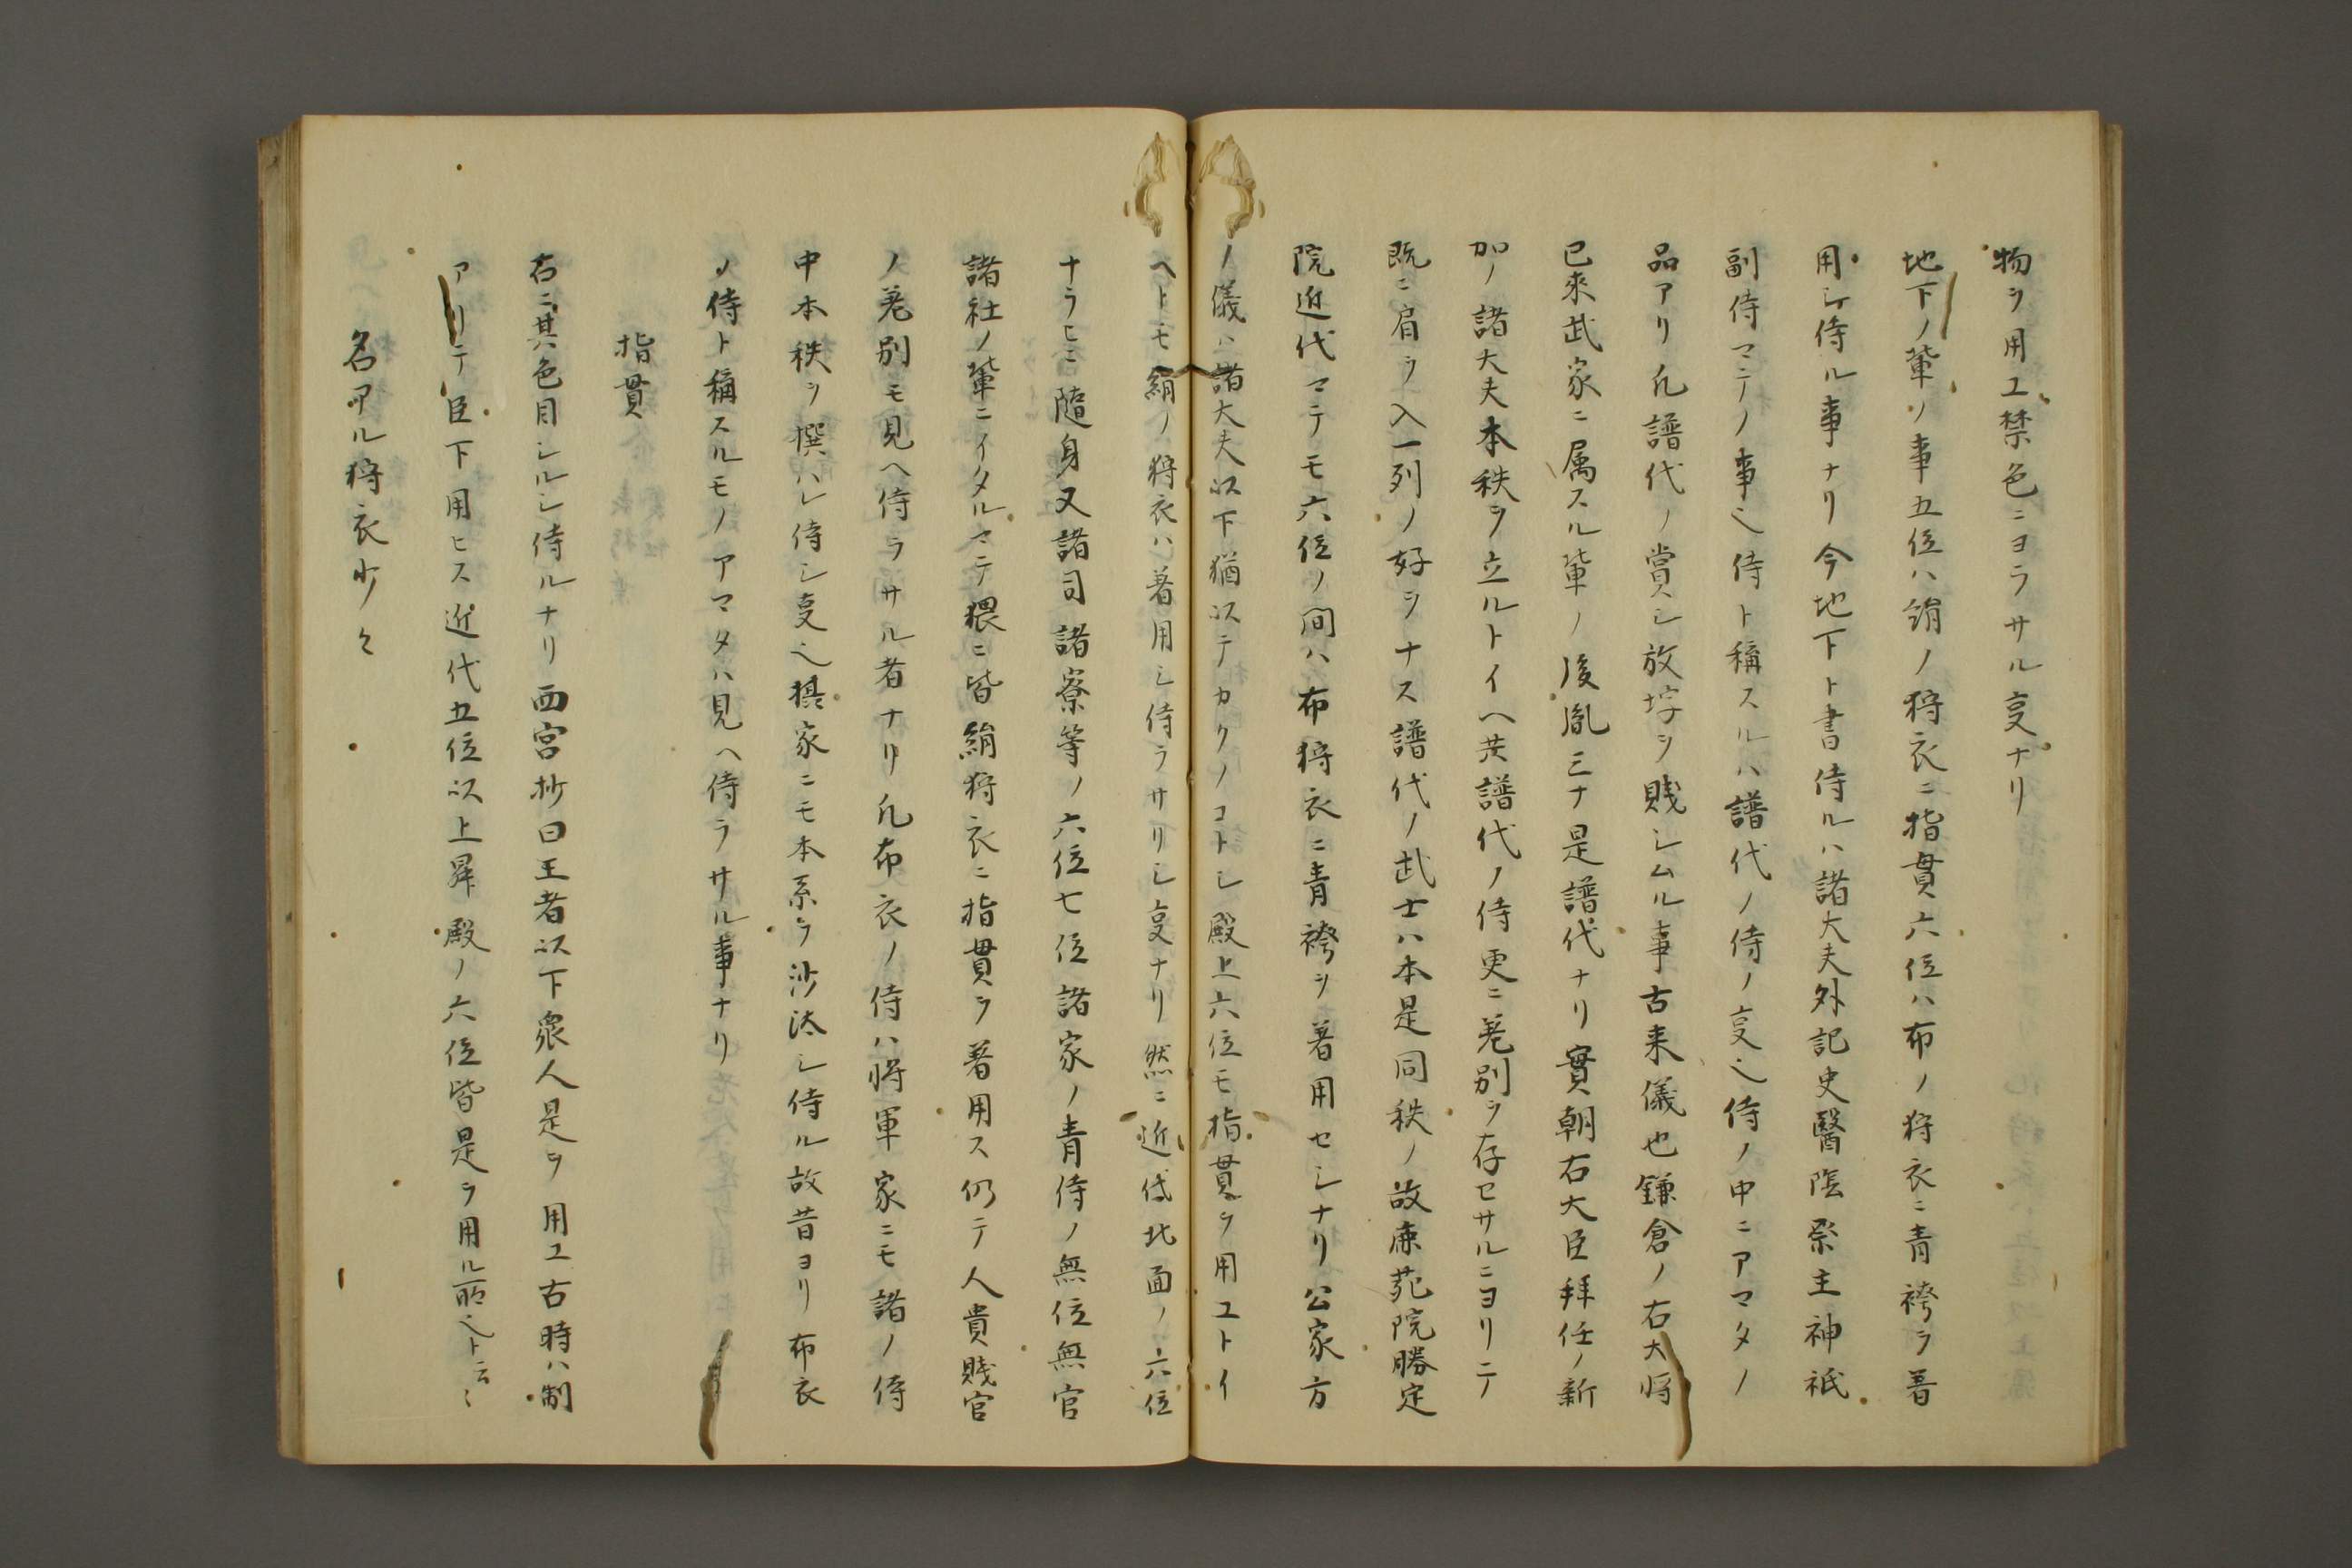 物ヲ用ユ禁色ニヨラサル叓ナリ
地下ノ輩ノ事五位ハ絹ノ狩衣ニ指貫六位ハ布ノ狩衣ニ青袴ヲ著
用シ侍ル事ナリ今地下ト書侍ルハ諸大夫外記史醫陰祭主神祇
副侍マテノ事也侍ト稱スルハ譜代ノ侍ノ叓也侍ノ中ニアマタノ
品アリ凡譜代ノ賞シ放埓ヲ賎シムル事古来儀也鎌倉ノ右大将
已來武家ニ属スル輩ノ後胤ミナ是譜代ナリ實朝右大臣拜任ノ新
加ノ諸大夫本秩ヲ立ルトイヘ共譜代ノ侍更ニ差別ヲ存セサルニヨリテ
既ニ肩ヲ入一列ノ好ヲナス譜代ノ武士ハ本是同秩ノ故鹿苑院勝定
院近代マテモ六位ノ間ハ布狩衣ニ青袴ヲ著用セシナリ公家方
ノ儀ハ諸大夫以下猶以テカクノコトシ殿上六位モ指貫ヲ用ユトイ
ヘトモ絹ノ狩衣ハ著用シ侍ラサリシ叓ナリ然ニ近代北面ノ六位
ナラヒニ隨身又諸司諸寮等ノ六位七位諸家ノ青侍ノ無位無官
諸社ノ輩ニイタルマテ猥ニ皆絹狩衣ニ指貫ヲ著用ス仍テ人貴賎官
ノ差別モ見ヘ侍ラサル者ナリ凡布衣ノ侍ハ将軍家ニモ諸ノ侍
中本秩ヲ撰ハレ侍シ叓也摂家ニモ本系ヲ沙汰シ侍ル故昔ヨリ布衣
ノ侍ト稱スルモノアマタハ見ヘ侍ラサル事ナリ
指貫
右ニ其色目シルシ侍ルナリ西宮抄曰王者以下衆人是ヲ用ユ古時ハ制
アリテ臣下用ヒス近代五位以上昇殿ノ六位皆是ヲ用ル所也ト云〻
名アル狩衣少〻